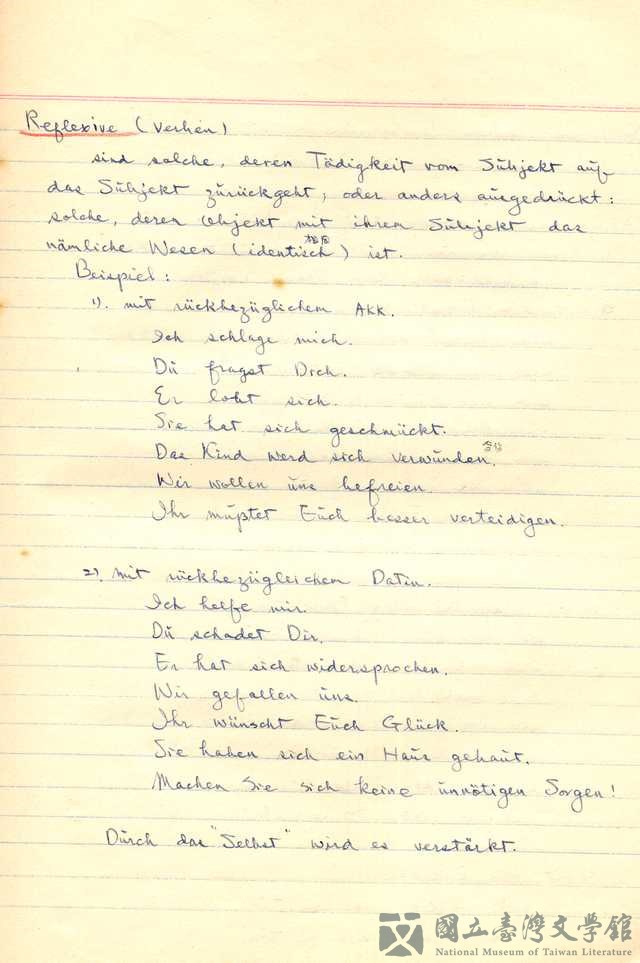 Reflexive (Verben)
sind solche, deren Tädigkeit vom Subjekt auf
das Subjekt zurückgeht; oder anders ausgedrückt:
solche, deren Objekt mit ihrem Subjekt das
相同
nämliche Wesen (identisch) ist.
Beispiel:
1). mit rückbezüglichem Akk.
Ich schlage mich.
Du fragst Dich.
Er lobt sich.
Sie hat sich geschmückt.
Das Kind werd sich verwunden.
Wir wollen uns befreien.
Ihr müßtet Euch besser verteidigen.
2). mit rückbezügleichem Dativ.
Ich helfe mir.
Du schadet Dir.
Er hat sich widersprochen.
Wir gefallen uns.
Ihr wünscht Euch Glück.
Sie haben sich ein Haus gebaut.
Machen Sie sich keine unnötigen Sorgen!
Durch das "Selbst" wird es verstärkt.
國立臺灣文學館
National Museum of Taiwan Literature